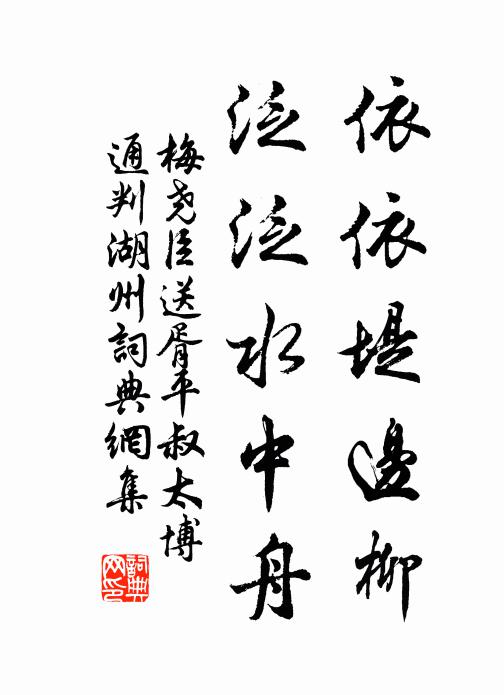 依依堤邊柳
泛泛水中舟
梅堯臣送胥平叔太博
通判湖州詞典網集
詞典
网印